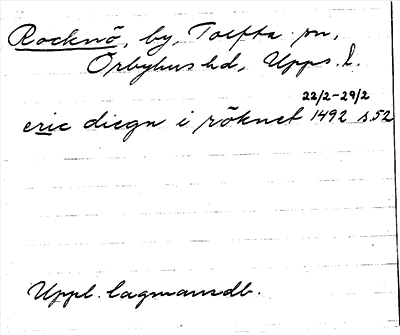 Rocknö, by, Tolfta sn,
Örbyhus hd, Upps. l.
22/2-29/2
eric diegn i röknet 1492 s.52
Uppl. lagmansdb.